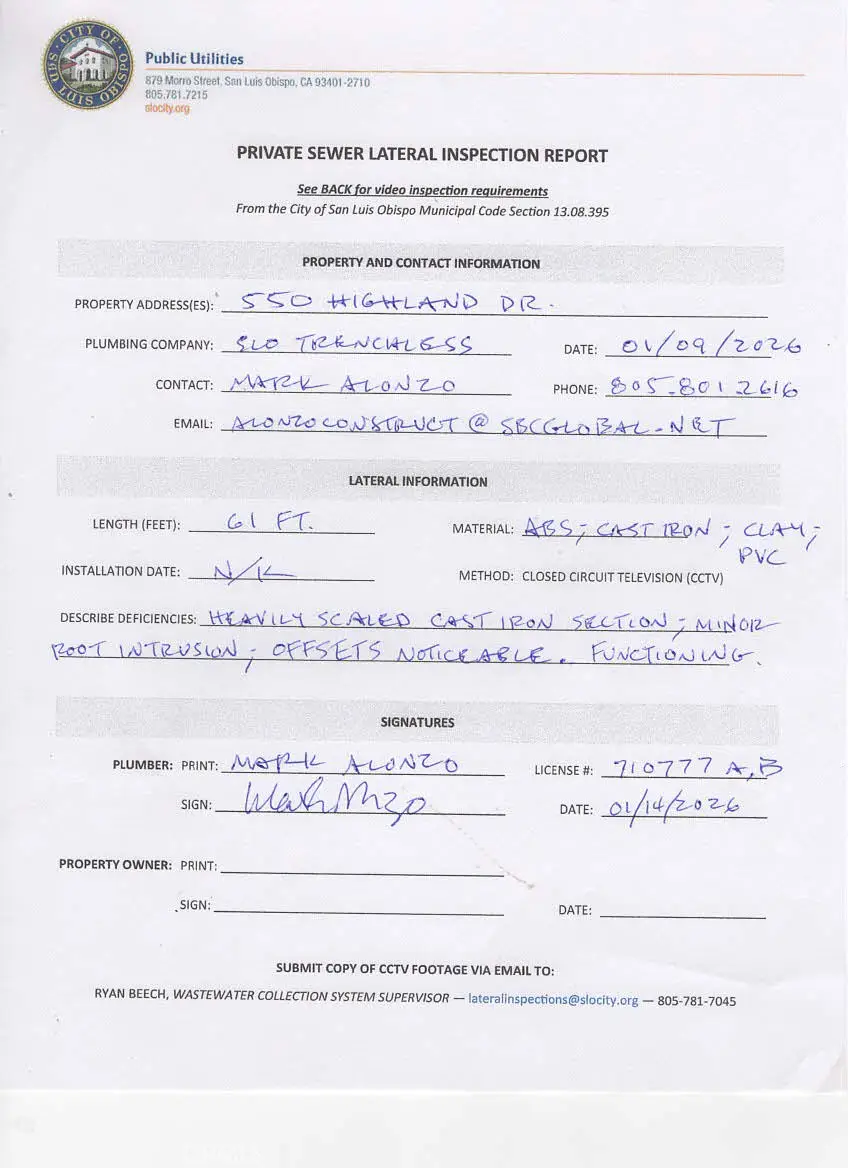 CITY OF SAN LUIS OBISPO
Public Utilities
879 Morro Street, San Luis Obispo, CA 93401-2710
805.781.7215
slocity.org
PRIVATE SEWER LATERAL INSPECTION REPORT
See BACK for video inspection requirements
From the City of San Luis Obispo Municipal Code Section 13.08.395
PROPERTY AND CONTACT INFORMATION
PROPERTY ADDRESS(ES): 550 HIGHLAND DR.
PLUMBING COMPANY: SLO TRENCHLESS DATE: 01/09/2026
CONTACT: MARK ALONZO PHONE: 805.801 2616
EMAIL: ALONZOCONSTRUCT@SBCGLOBAL.NET
LATERAL INFORMATION
LENGTH (FEET): 61 FT. MATERIAL: ABS; CAST IRON; CLAY;
PVC
INSTALLATION DATE: N/K METHOD: CLOSED CIRCUIT TELEVISION (CCTV)
DESCRIBE DEFICIENCIES: HEAVILY SCALED CAST IRON SECTION; MINOR
ROOT INTRUSION; OFFSETS NOTICEABLE. FUNCTIONING.
SIGNATURES
PLUMBER: PRINT: MARK ALONZO LICENSE #: 710777 A,B
SIGN: Mark Alonzo DATE: 01/14/2026
PROPERTY OWNER: PRINT:
SIGN: DATE:
SUBMIT COPY OF CCTV FOOTAGE VIA EMAIL TO:
RYAN BEECH, WASTEWATER COLLECTION SYSTEM SUPERVISOR — lateralinspections@slocity.org — 805-781-7045